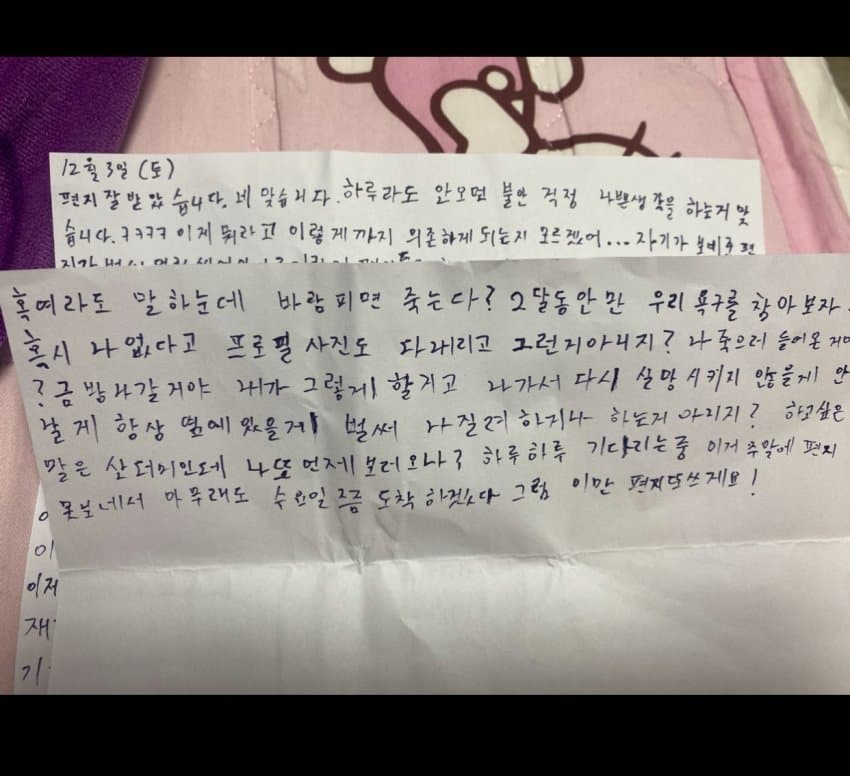 12월 3일 (토)
편지 잘 받았습니다. 네 맞습니다. 하루라도 안오면 불안 걱정 나쁜생각을 하는거 맞
습니다. ㅋㅋㅋㅋ 이제 뭐라고 이렇게까지 의존하게 되는지 모르겠어... 자기가 보내준 편
혹여라도 말하는데 바람피면 죽는다? 2달동안만 우리 욕구를 참아보자
혹시 나 없다고 프로필 사진도 다 내리고 그런거아니지? 나 죽으러 들어온
? 금방나갈거야 내가 그렇게 할거고 나가서 다시 실망시키지 않을게
잘게 항상 옆에 있을게 벌써 나 질려하거나 하는거 아니지? 하고싶은
말은 산더미인데 나 또 언제 보러오나? 하루하루 기다리는중 이거 주말에 편지
못보내서 아무래도 수요일즘 도착하겠다 그럼 이만 편지답쓰게요!
이
이제
재
기